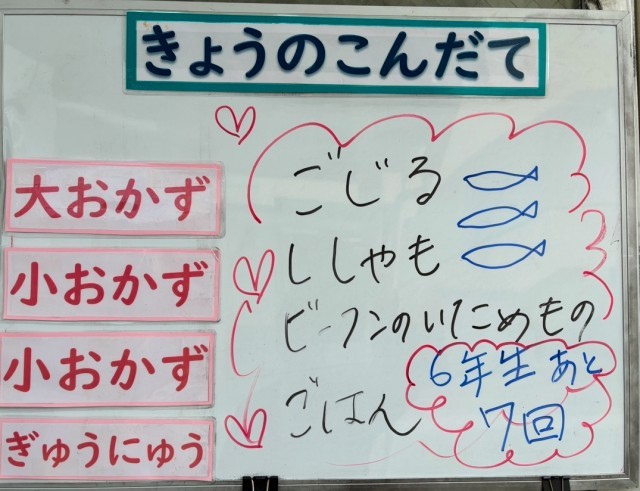 きょうのこんだて
大おかず
ごじる
小おかず
ししゃも
小おかず
ビーフンのいためもの
ぎゅうにゅう
ごはん
6年生 あと
7回